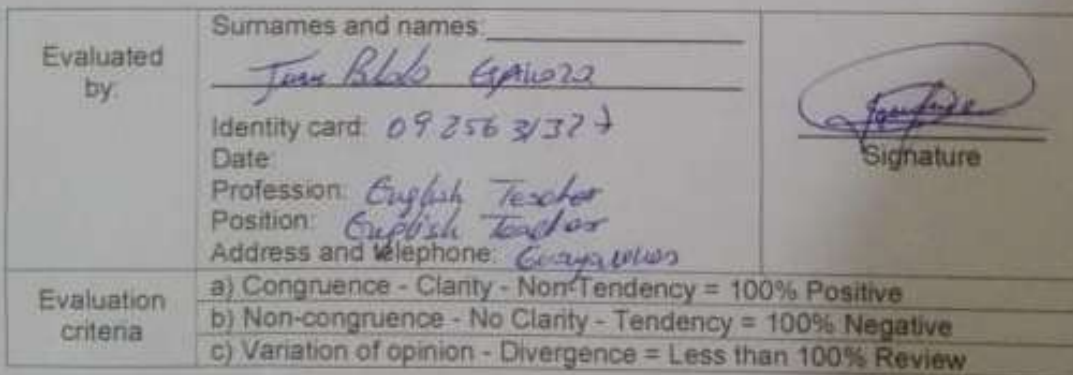 Surnames and names:
Evaluated by:
Juan Pablo
Identity card: 0925631327
Date:
Signature
Profession: English Teacher
Position: English Teacher
Address and telephone:
Evaluation criteria
a) Congruence - Clarity - Non-Tendency = 100% Positive
b) Non-congruence - No Clarity - Tendency = 100% Negative
c) Variation of opinion - Divergence = Less than 100% Review